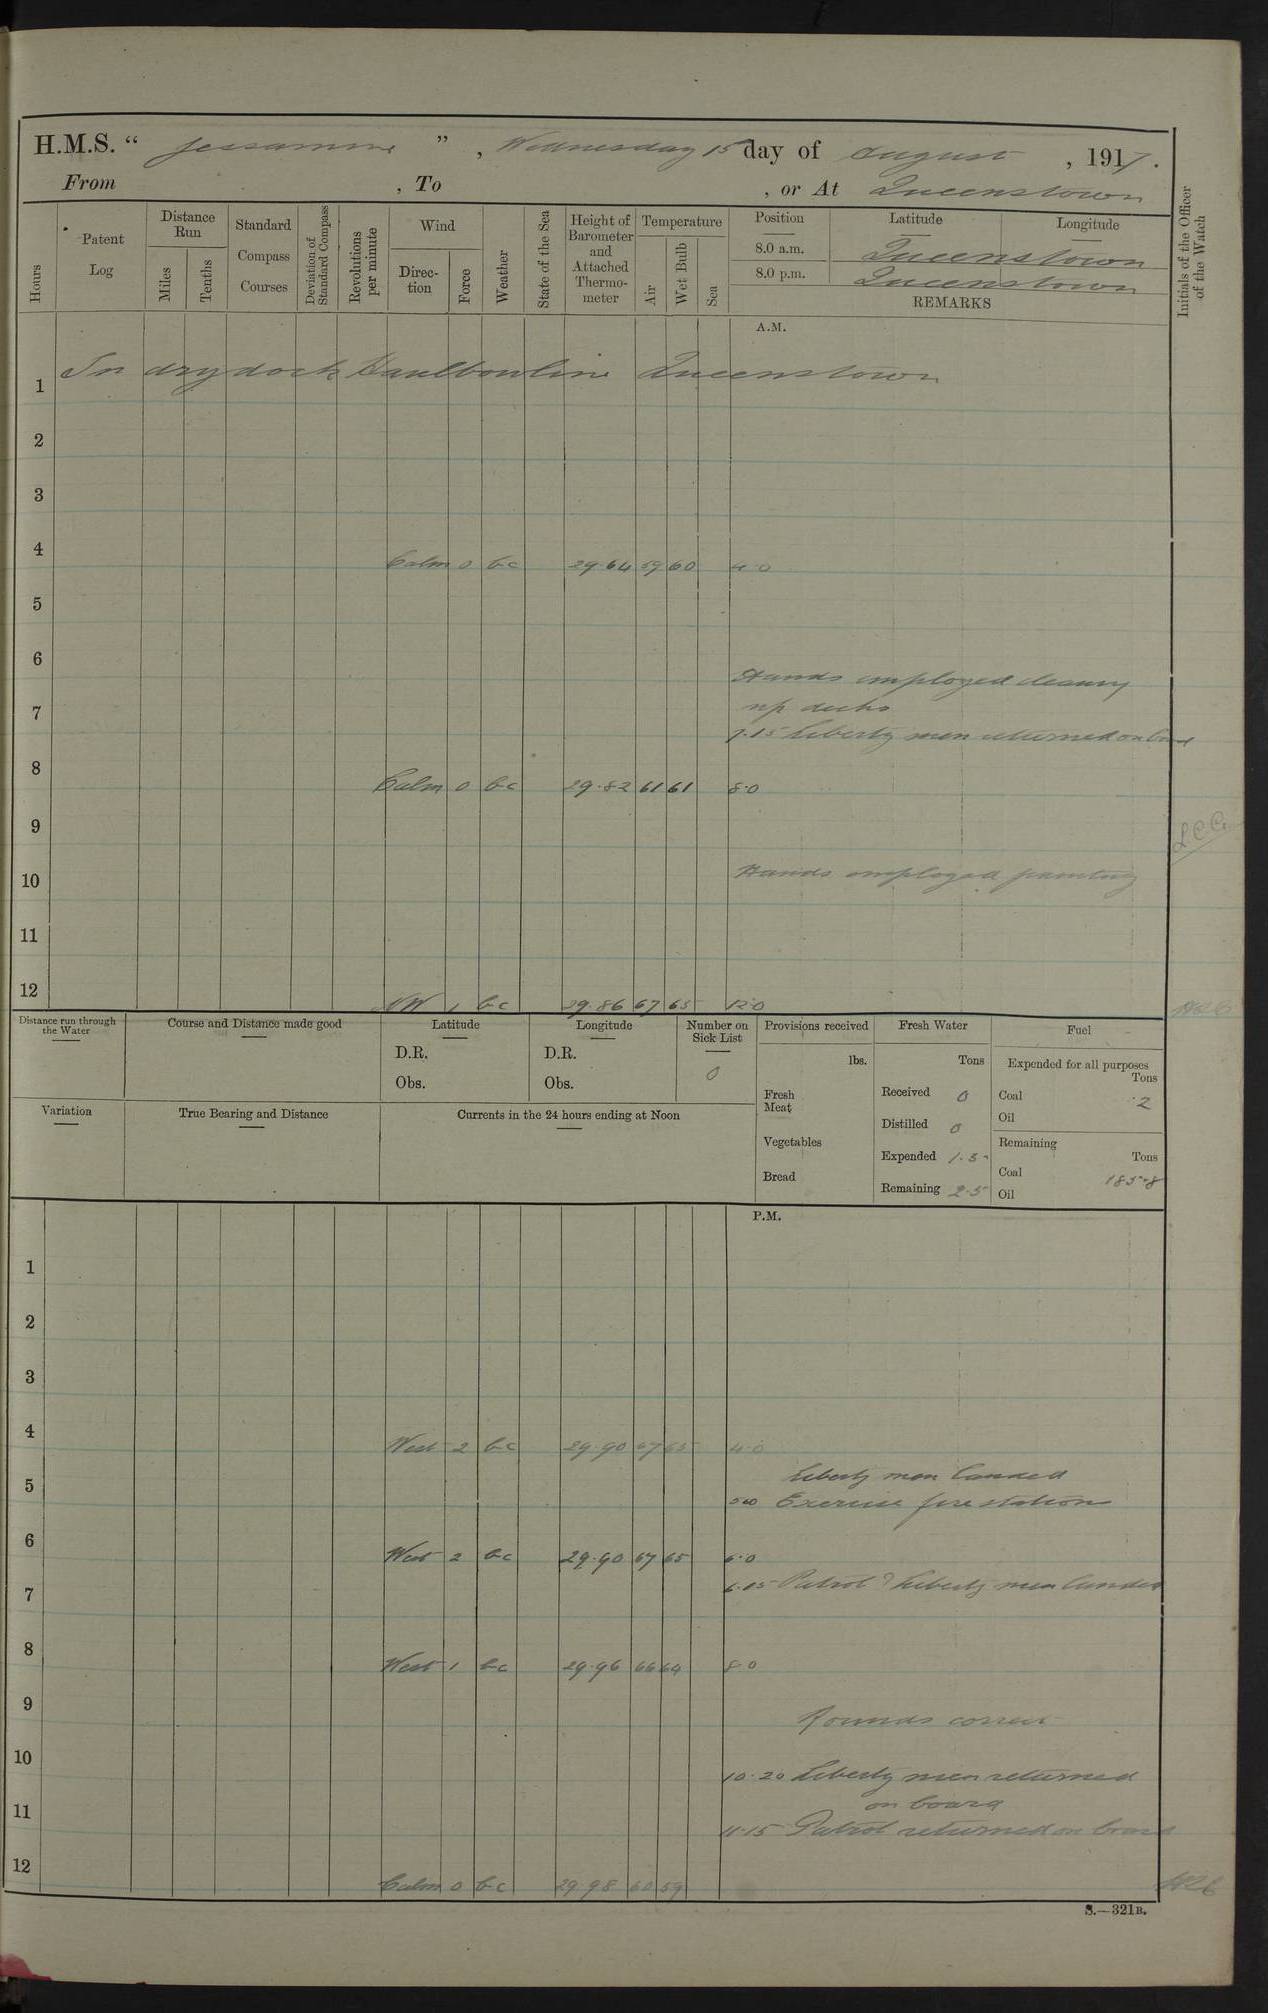 H.M.S. “ Jessamine ” , Wednesday 15 day of August , 1917.
From , To , or At Queenstown
Hours
Patent Log
Distance Run
Miles
Tenths
Standard Compass Courses
Deviation of Standard Compass
Revolutions per minute
Wind
Direc-tion
Force
Weather
State of the Sea
Height of Barometer and Attached Thermo-meter
Temperature
Air
Wet Bulb
Sea
Position Latitude Longitude
8.0 a.m. Queenstown
8.0 p.m. Queenstown
REMARKS
Initials of the Officer of the Watch
A.M.
1 In dry dock Haulbowline Queenstown
2
3
4 Calm 0 bc 29.64 59 60 4.0
5
6 Hands employed cleaning
7 up decks
7.15 Liberty men returned on board
8 Calm 0 bc 29.82 61 61 8.0
9
10 Hands employed painting
11
12 NW 1 bc 29.86 67 65 12.0
Distance run through the Water
Course and Distance made good
Latitude
D.R.
Obs.
Longitude
D.R.
Obs.
Number on Sick List
0
Variation
True Bearing and Distance
Currents in the 24 hours ending at Noon
Provisions received
lbs.
Fresh Meat
Vegetables
Bread
Fresh Water
Tons
Received 0
Distilled 0
Expended 1.5
Remaining 2.5
Fuel
Expended for all purposes
Tons
Coal .2
Oil
Remaining
Tons
Coal 185.8
Oil
P.M.
1
2
3
4 West 2 bc 29.90 67 65 4.0
Liberty men landed
5 5.0 Exercise fire stations
6 West 2 bc 29.90 67 65 6.0
7 6.15 Patrol & Liberty men landed
8 West 1 bc 29.96 66 64 8.0
9 Rounds correct
10 10.20 Liberty men returned
11 on board
11.15 Patrol returned on board
12 Calm 0 bc 29.98 60 59
S.—321B.